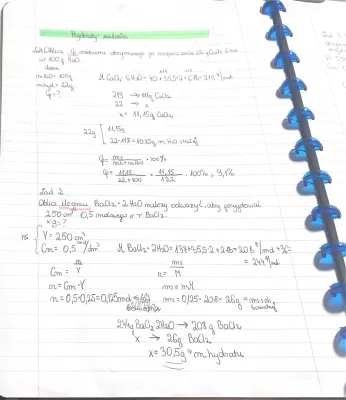 Hydraty - zadania
Zad. Oblicz Cp roztworu otrzymanego po rozpuszczeniu 22g CaCl2 · 6H2O
w 100g H2O.
dane:
mH2O = 100g
mhyd = 22g
Cp = ?
M CaCl2 · 6H2O = 40 + 35,5·2 + 6·18 = 219 g/mol
219 → 111g CaCl2
22 → x
x = 11,15g CaCl2
22g [ 11,15g
22 - 11,15 = 10,85g m H2O
Cp = ms / · 100%
Cp = 11,15 / 22+100 = 11,15 / 122 · 100% = 9,1%
Zad. 2
Oblicz ile gram BaCl2 · 2H2O należy odważyć, aby przygotować
250 cm³ 0,5 molowego r-r BaCl2.
xg = ?
V = 250 cm³
Cm = 0,5 mol/dm³
M BaCl2 · 2H2O = 137 + 35,5·2 + 2·18 = 208 g/mol + 36 =
= 244 g/mol
Cm = n/V
n = ms/M
n = Cm · V
ms = n·M
n = 0,5 · 0,25 = 0,125 mol
ms = 0,125 · 208 = 26g → ms
244g BaCl2 · 2H2O → 208g BaCl2
x → 26g BaCl2
x = 30,5g → m hydratu